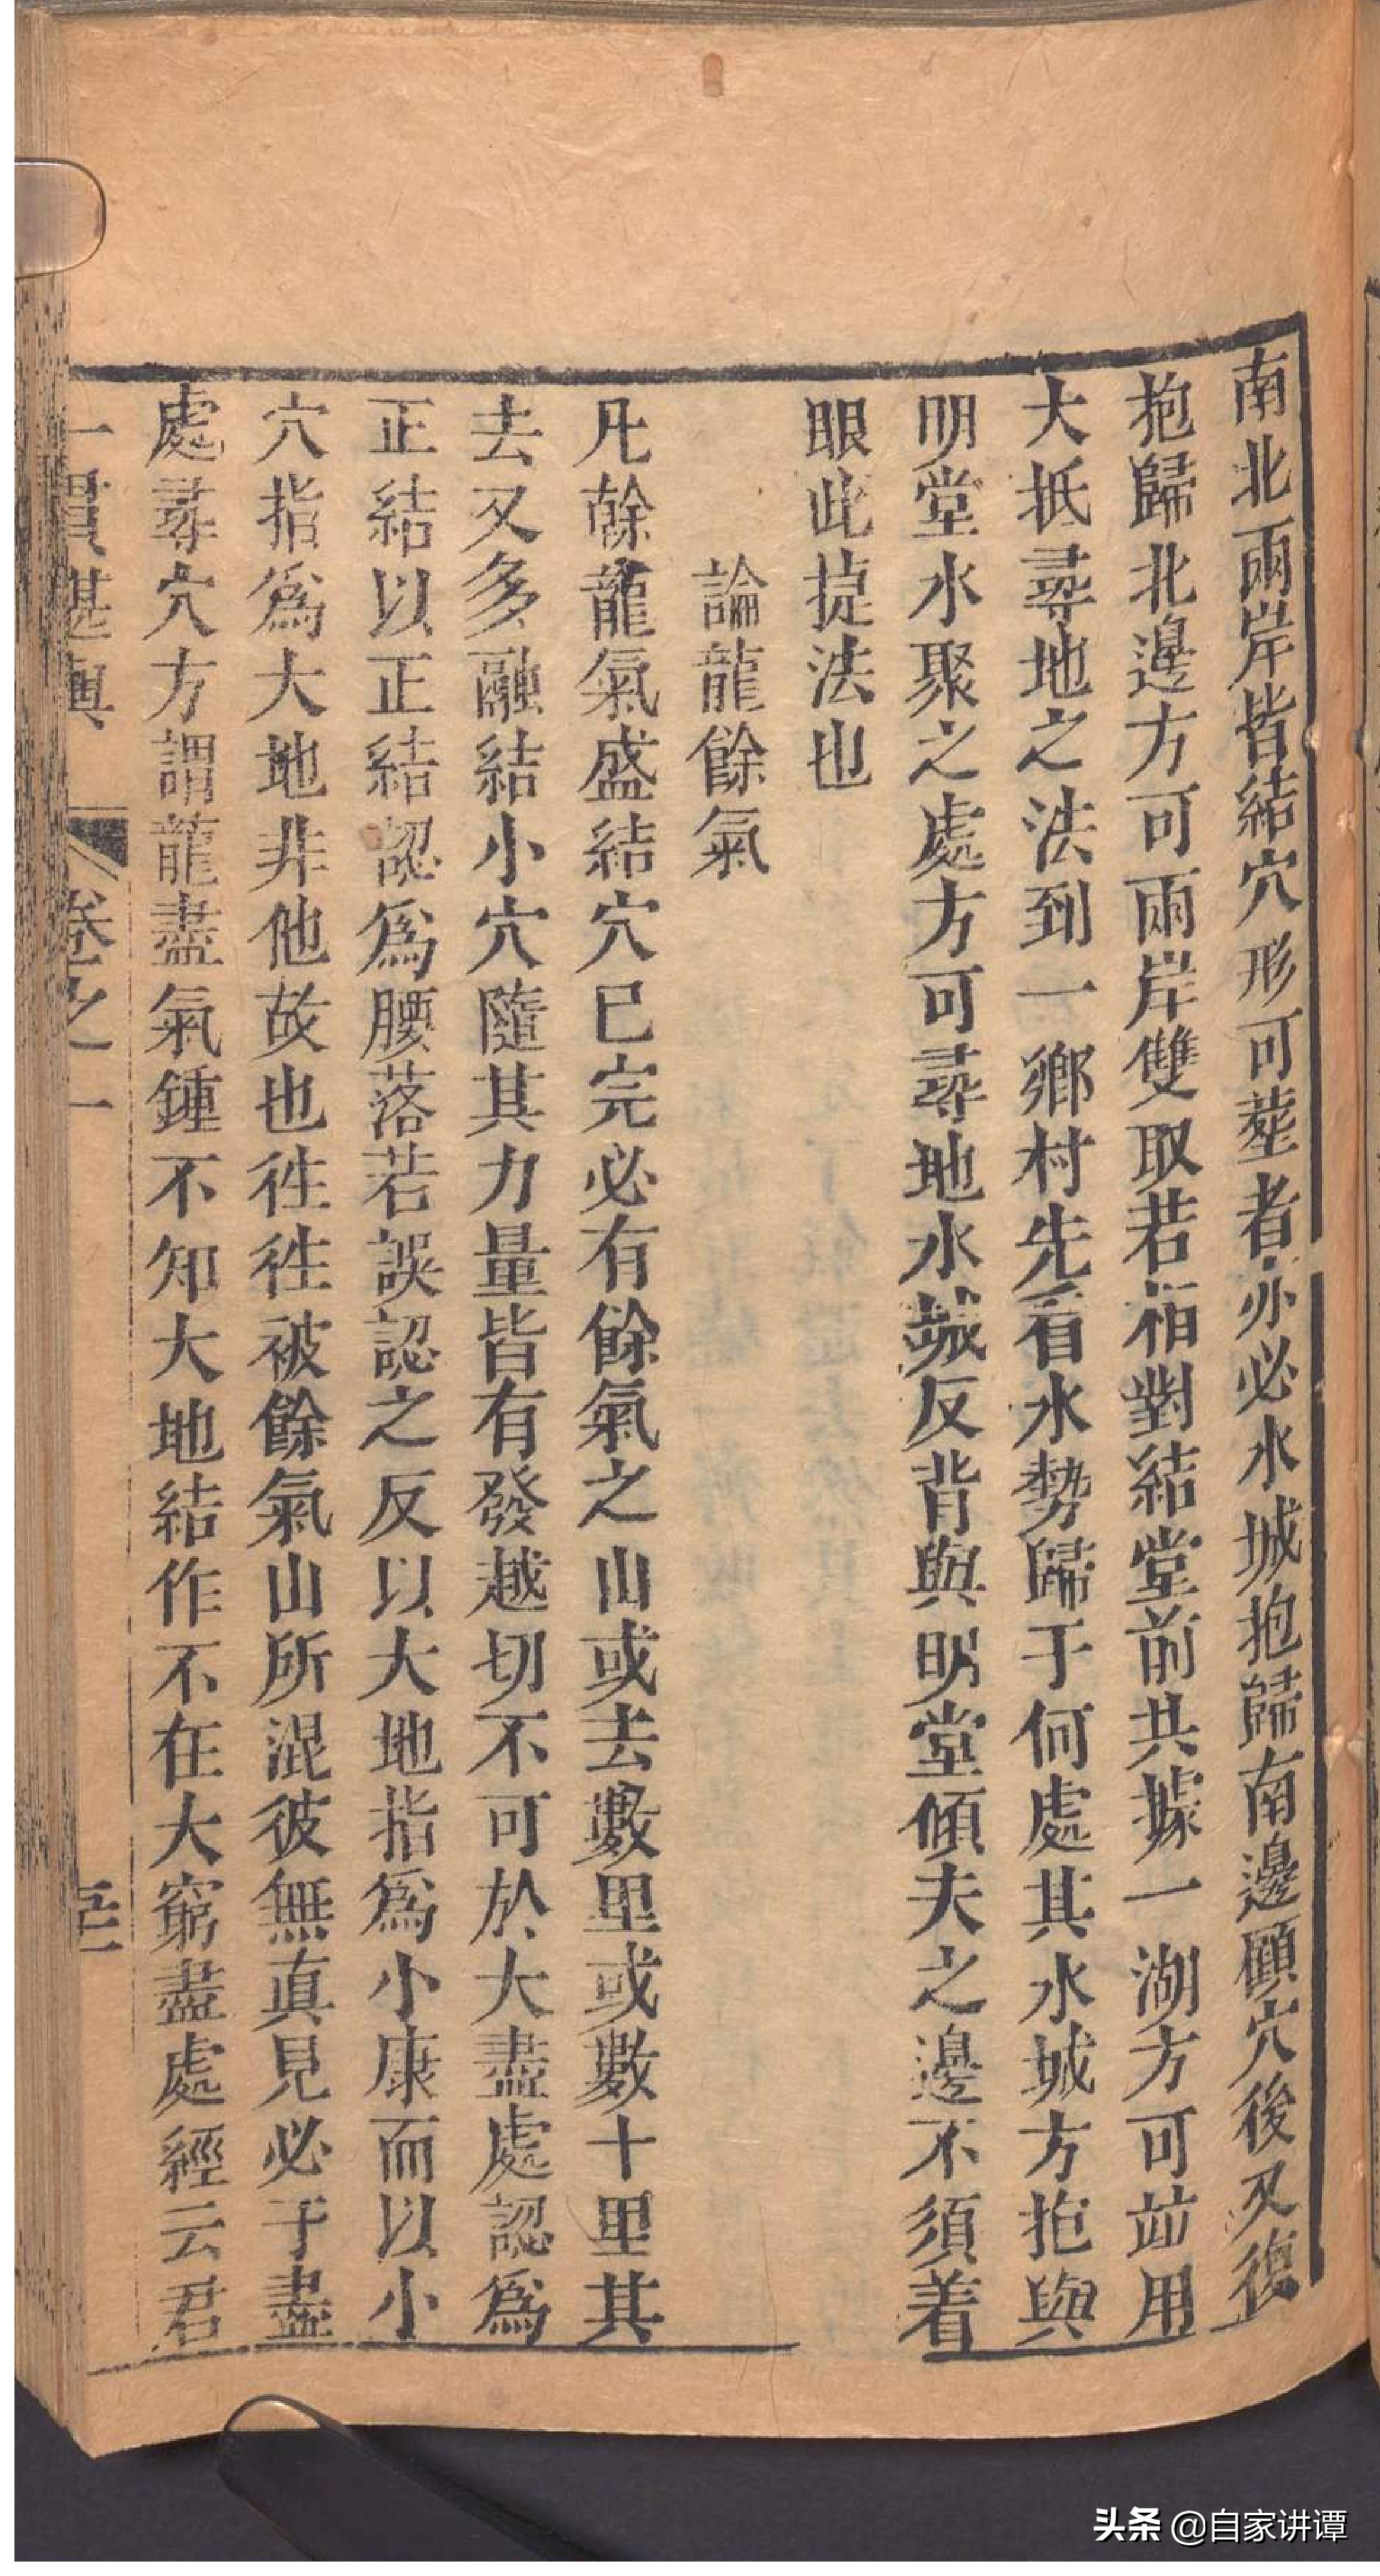 南北兩岸皆結穴形可塟者亦必水城抱歸南邊顧穴後又復
抱歸北邊方可兩岸雙取若相對結堂前共據一湖方可竝用
大抵尋地之法到一鄉村先看水勢歸于何處其水城方抱與
明堂水聚之處方可尋地水城反背與明堂傾夫之邊不須着
眼此㨗法也
論龍餘氣
凡幹龍氣盛結穴已完必有餘氣之山或去數里或數十里其
去又多融結小穴隨其力量皆有發越切不可於大盡處認爲
正結以正結認爲腰落若誤認之反以大地指爲小康而以小
穴指爲大地非他故也徃徃被餘氣山所混彼無真見必于盡
處尋穴方謂龍盡氣鍾不知大地結作不在大窮盡處經云君
一貫堪輿 卷之一
头条 @自家讲谭